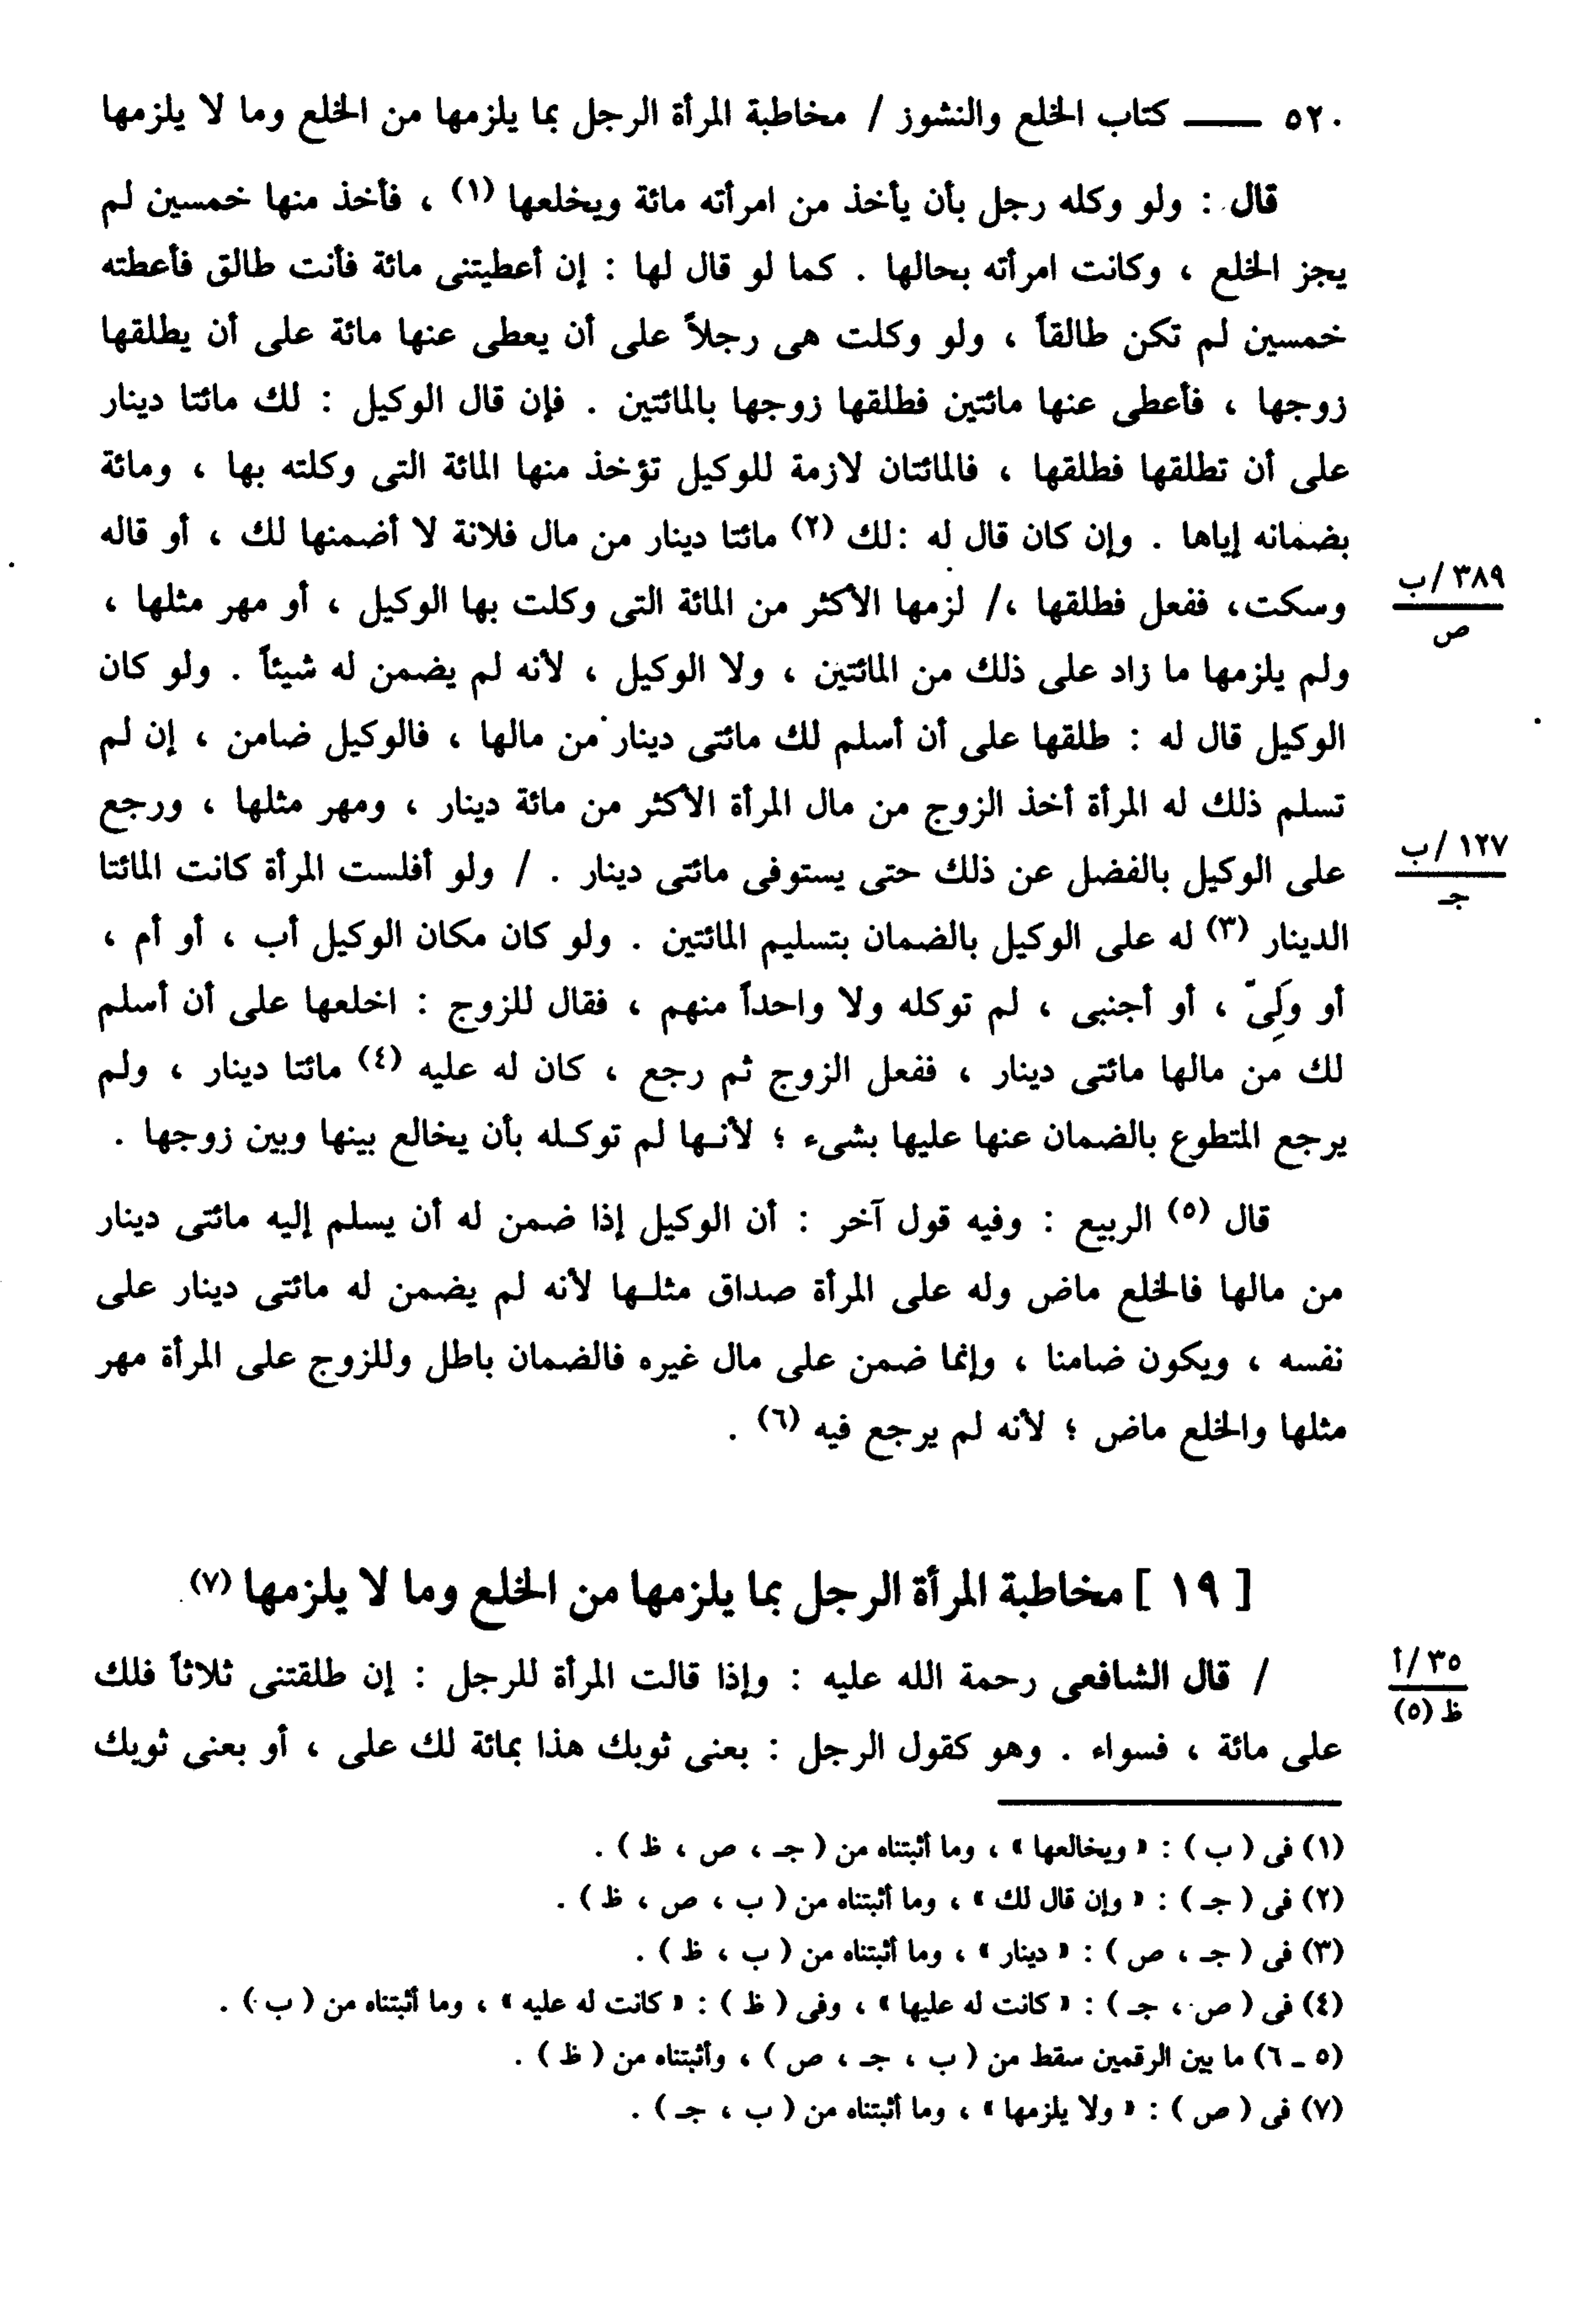 ٥٢٠ ــــ كتاب الخلع والنشوز / مخاطبة المرأة الرجل بما يلزمها من الخلع وما لا يلزمها
قال : ولو وكله رجل بأن يأخذ من امرأته مائة ويخلعها (١) ، فأخذ منها خمسين لم
يجز الخلع ، وكانت امرأته بحالها . كما لو قال لها : إن أعطيتنى مائة فأنت طالق فأعطته
خمسين لم تكن طالقاً ، ولو وكلت هى رجلاً على أن يعطى عنها مائة على أن يطلقها
زوجها ، فأعطى عنها مائتين فطلقها زوجها بالمائتين . فإن قال الوكيل : لك مائتا دينار
على أن تطلقها فطلقها ، فالمائتان لازمة للوكيل تؤخذ منها المائة التى وكلته بها ، ومائة
بضمانه إياها . وإن كان قال له :لك (٢) مائتا دينار من مال فلانة لا أضمنها لك ، أو قاله
وسكت، ففعل فطلقها ،/ لزمها الأكثر من المائة التى وكلت بها الوكيل ، أو مهر مثلها ،
٣٨٩/ب
ص
ولم يلزمها ما زاد على ذلك من المائتين ، ولا الوكيل ، لأنه لم يضمن له شيئاً . ولو كان
الوكيل قال له : طلقها على أن أسلم لك مائتى دينار من مالها ، فالوكيل ضامن ، إن لم
تسلم ذلك له المرأة أخذ الزوج من مال المرأة الأكثر من مائة دينار ، ومهر مثلها ، ورجع
على الوكيل بالفضل عن ذلك حتى يستوفى مائتى دينار . / ولو أفلست المرأة كانت المائتا
١٢٧/ب
جـ
الدينار (٣) له على الوكيل بالضمان بتسليم المائتين . ولو كان مكان الوكيل أب ، أو أم ،
أو وَلِىّ ، أو أجنبى ، لم توكله ولا واحداً منهم ، فقال للزوج : اخلعها على أن أسلم
لك من مالها مائتى دينار ، ففعل الزوج ثم رجع ، كان له عليه (٤) مائتا دينار ، ولم
يرجع المتطوع بالضمان عنها عليها بشىء ؛ لأنـها لم توكـله بأن يخالع بينها وبين زوجها .
قال (٥) الربيع : وفيه قول آخر : أن الوكيل إذا ضمن له أن يسلم إليه مائتى دينار
من مالها فالخلع ماض وله على المرأة صداق مثلـها لأنه لم يضمن له مائتى دينار على
نفسه ، ويكون ضامنا ، وإنما ضمن على مال غيره فالضمان باطل وللزوج على المرأة مهر
مثلها والخلع ماض ؛ لأنه لم يرجع فيه (٦) .
[ ١٩ ] مخاطبة المرأة الرجل بما يلزمها من الخلع وما لا يلزمها (٧)
/ قال الشافعى رحمة الله عليه : وإذا قالت المرأة للرجل : إن طلقتنى ثلاثاً فلك
٣٥/أ
ظ (٥)
على مائة ، فسواء . وهو كقول الرجل : بعنى ثوبك هذا بمائة لك على ، أو بعنى ثوبك
(١) فى ( ب ) : « ويخالعها » ، وما أثبتناه من ( جـ ، ص ، ظ ) .
(٢) فى ( جـ ) : « وإن قال لك » ، وما أثبتناه من ( ب ، ص ، ظ ) .
(٣) فى ( جـ ، ص ) : « دينار » ، وما أثبتناه من ( ب ، ظ ) .
(٤) فى ( ص ، جـ ) : « كانت له عليها » ، وفى ( ظ ) : « كانت له عليه » ، وما أثبتناه من ( ب ) .
(٥ ـ ٦) ما بين الرقمين سقط من ( ب ، جـ ، ص ) ، وأثبتناه من ( ظ ) .
(٧) فى ( ص ) : « ولا يلزمها » ، وما أثبتناه من ( ب ، جـ ) .